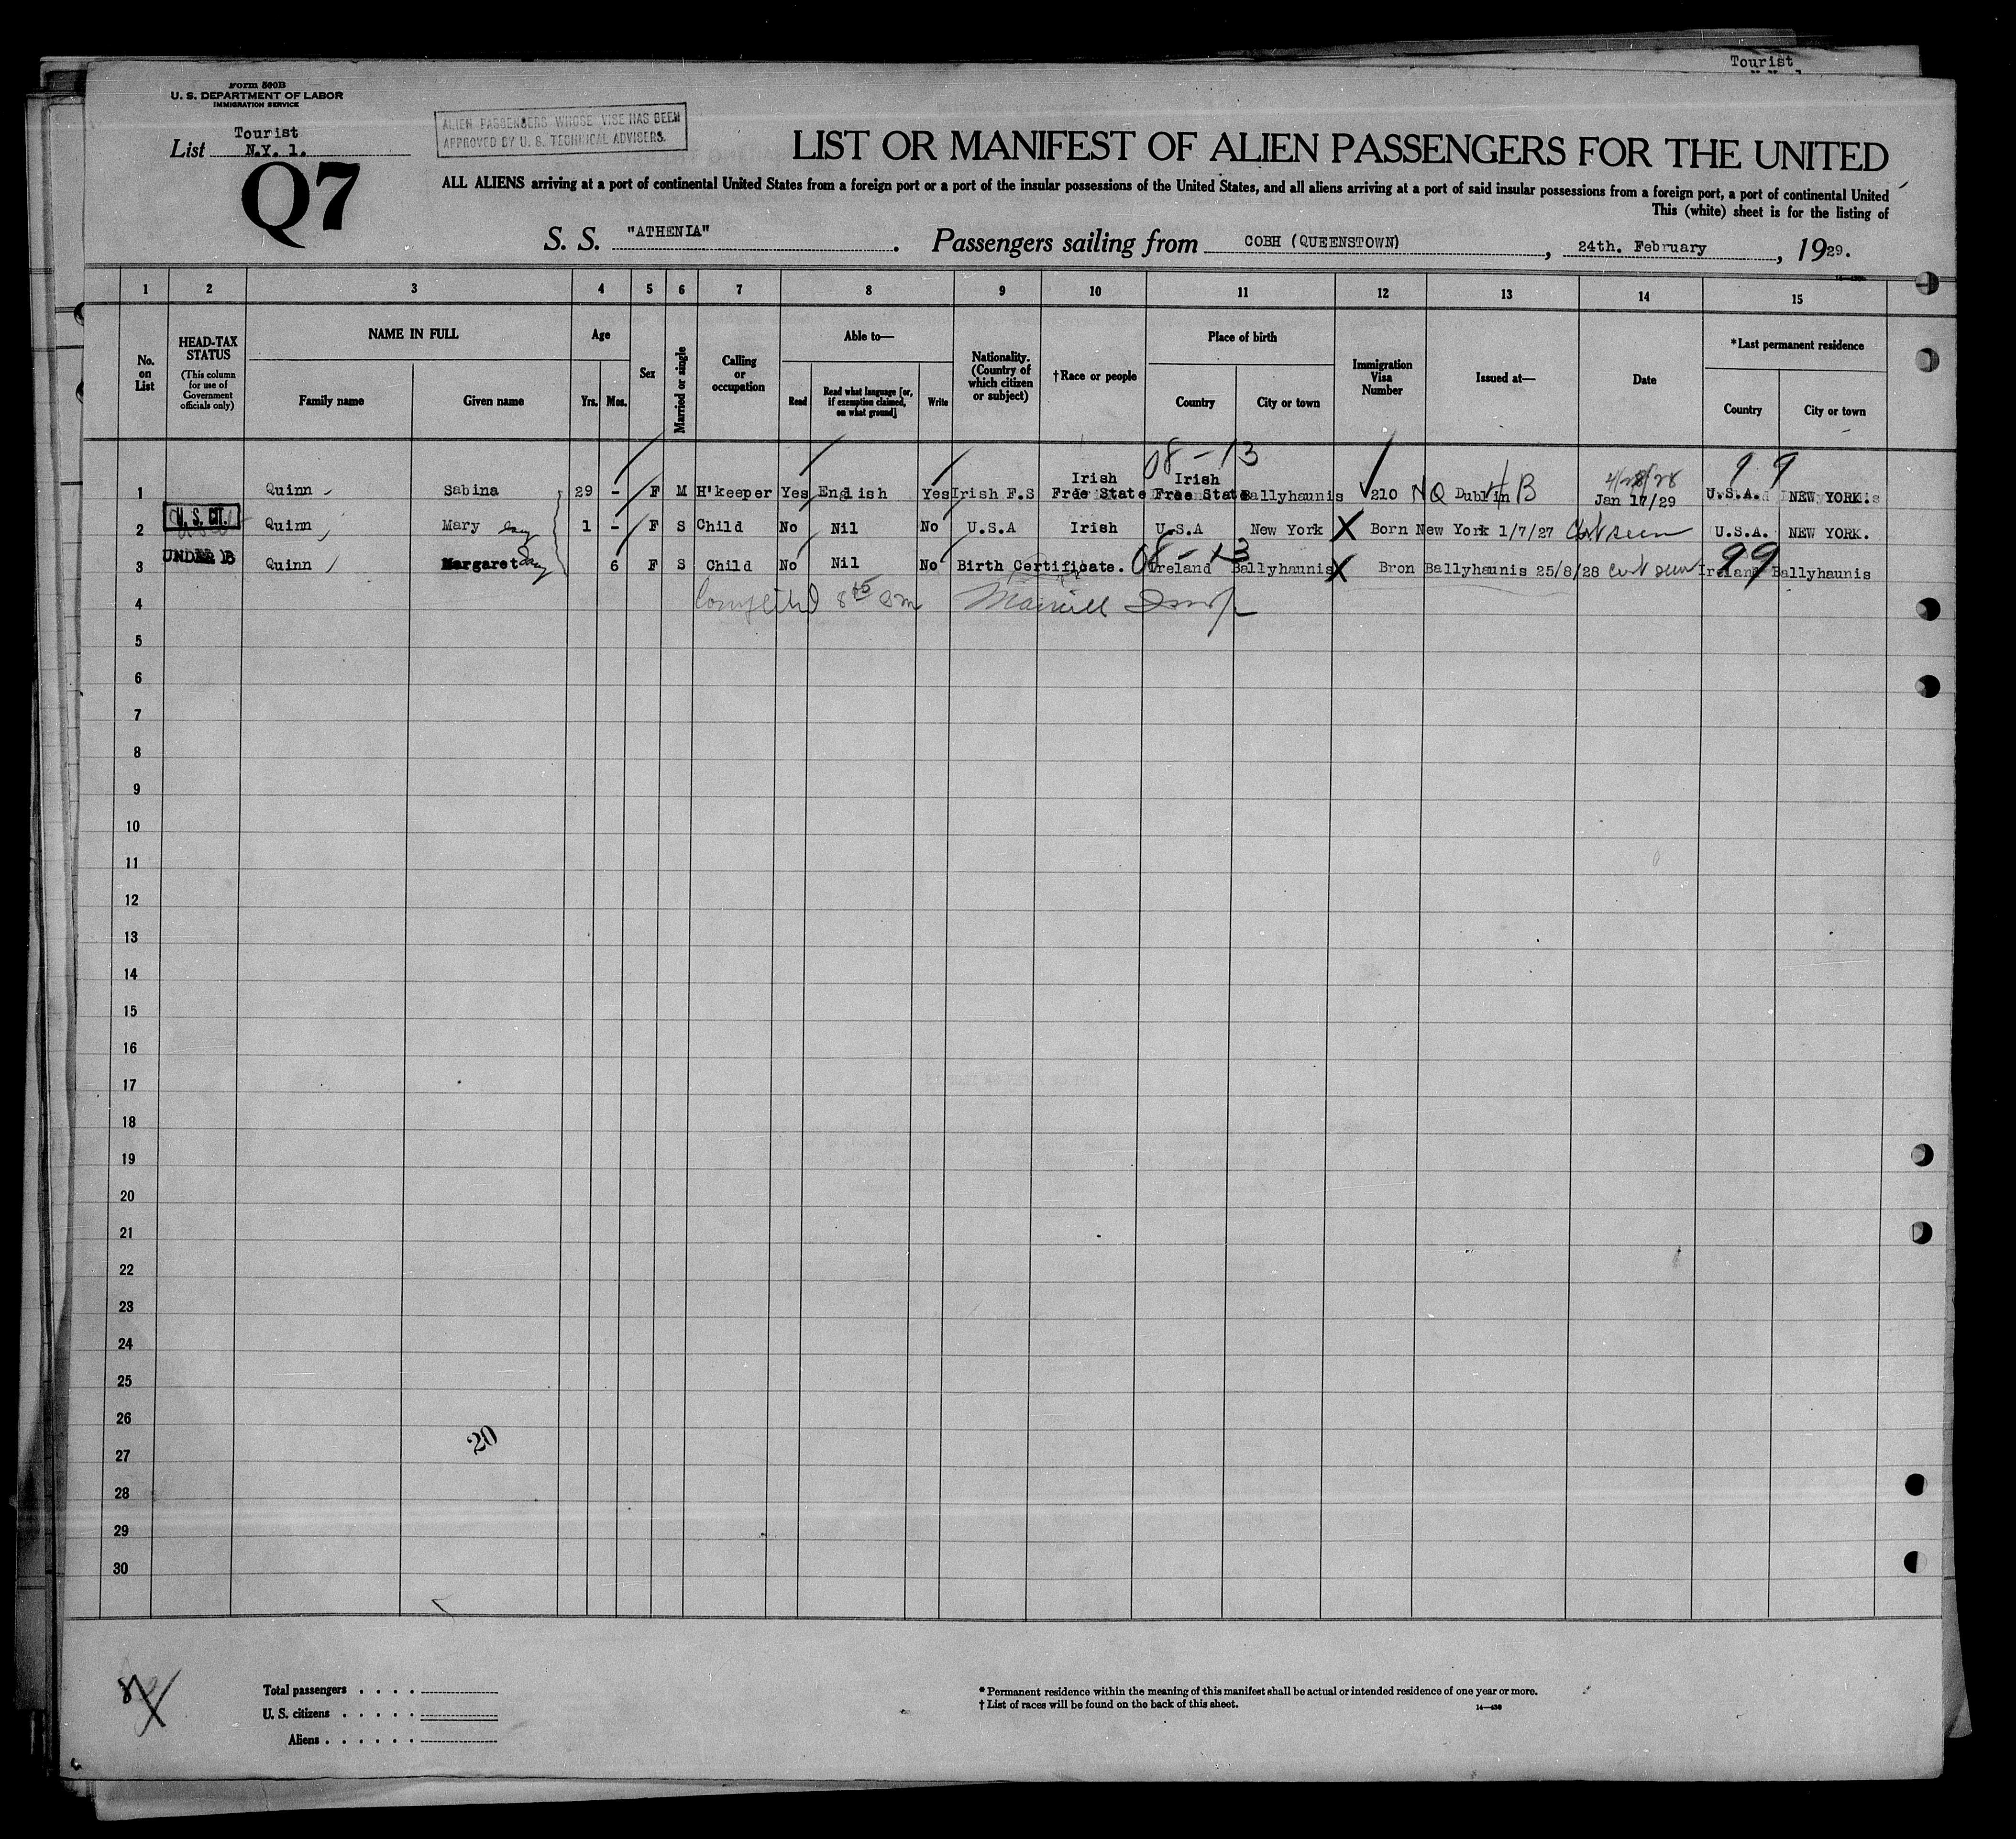 Tourist
Form 500B
U. S. DEPARTMENT OF LABOR
IMMIGRATION SERVICE
Tourist
List N.Y. 1.
Q7
ALIEN PASSENGERS WHOSE VISE HAS BEEN
APPROVED BY U. S. TECHNICAL ADVISERS.
LIST OR MANIFEST OF ALIEN PASSENGERS FOR THE UNITED
ALL ALIENS arriving at a port of continental United States from a foreign port or a port of the insular possessions of the United States, and all aliens arriving at a port of said insular possessions from a foreign port, a port of continental United
This (white) sheet is for the listing of
S. S. "ATHENIA". Passengers sailing from COBH (QUEENSTOWN), 24th. February, 1929.
1 2 3 4 5 6 7 8 9 10 11 12 13 14 15
No. on List
HEAD-TAX STATUS
(This column for use of Government officials only)
NAME IN FULL
Family name
Given name
Age
Yrs. Mos.
Sex
Married or single
Calling or occupation
Able to—
Read
Read what language [or, if exemption claimed, on what ground]
Write
Nationality. (Country of which citizen or subject)
†Race or people
Place of birth
Country
City or town
Immigration Visa Number
Issued at—
Date
*Last permanent residence
Country
City or town
08-13
99
1 Quinn Sabina 29 - F M H'keeper Yes English Yes Irish F.S Irish Free State Irish Free State Ballyhaunis 210 NQ Dublin B Jan 17/29 U.S.A. NEW YORK.
2 U. S. CIT. Quinn Mary 1 - F S Child No Nil No U.S.A Irish U.S.A New York X Born New York 1/7/27 Cert seen U.S.A. NEW YORK.
08-13
99
3 UNDER 16 Quinn Margaret 6 F S Child No Nil No Birth Certificate. Ireland Ballyhaunis X Bron Ballyhaunis 25/8/28 cert seen Ireland Ballyhaunis
4
5
6
7
8
9
10
11
12
13
14
15
16
17
18
19
20
21
22
23
24
25
26
20
27
28
29
30
Total passengers . . . .
U. S. citizens . . . . .
Aliens . . . . . .
* Permanent residence within the meaning of this manifest shall be actual or intended residence of one year or more.
† List of races will be found on the back of this sheet.
14—430